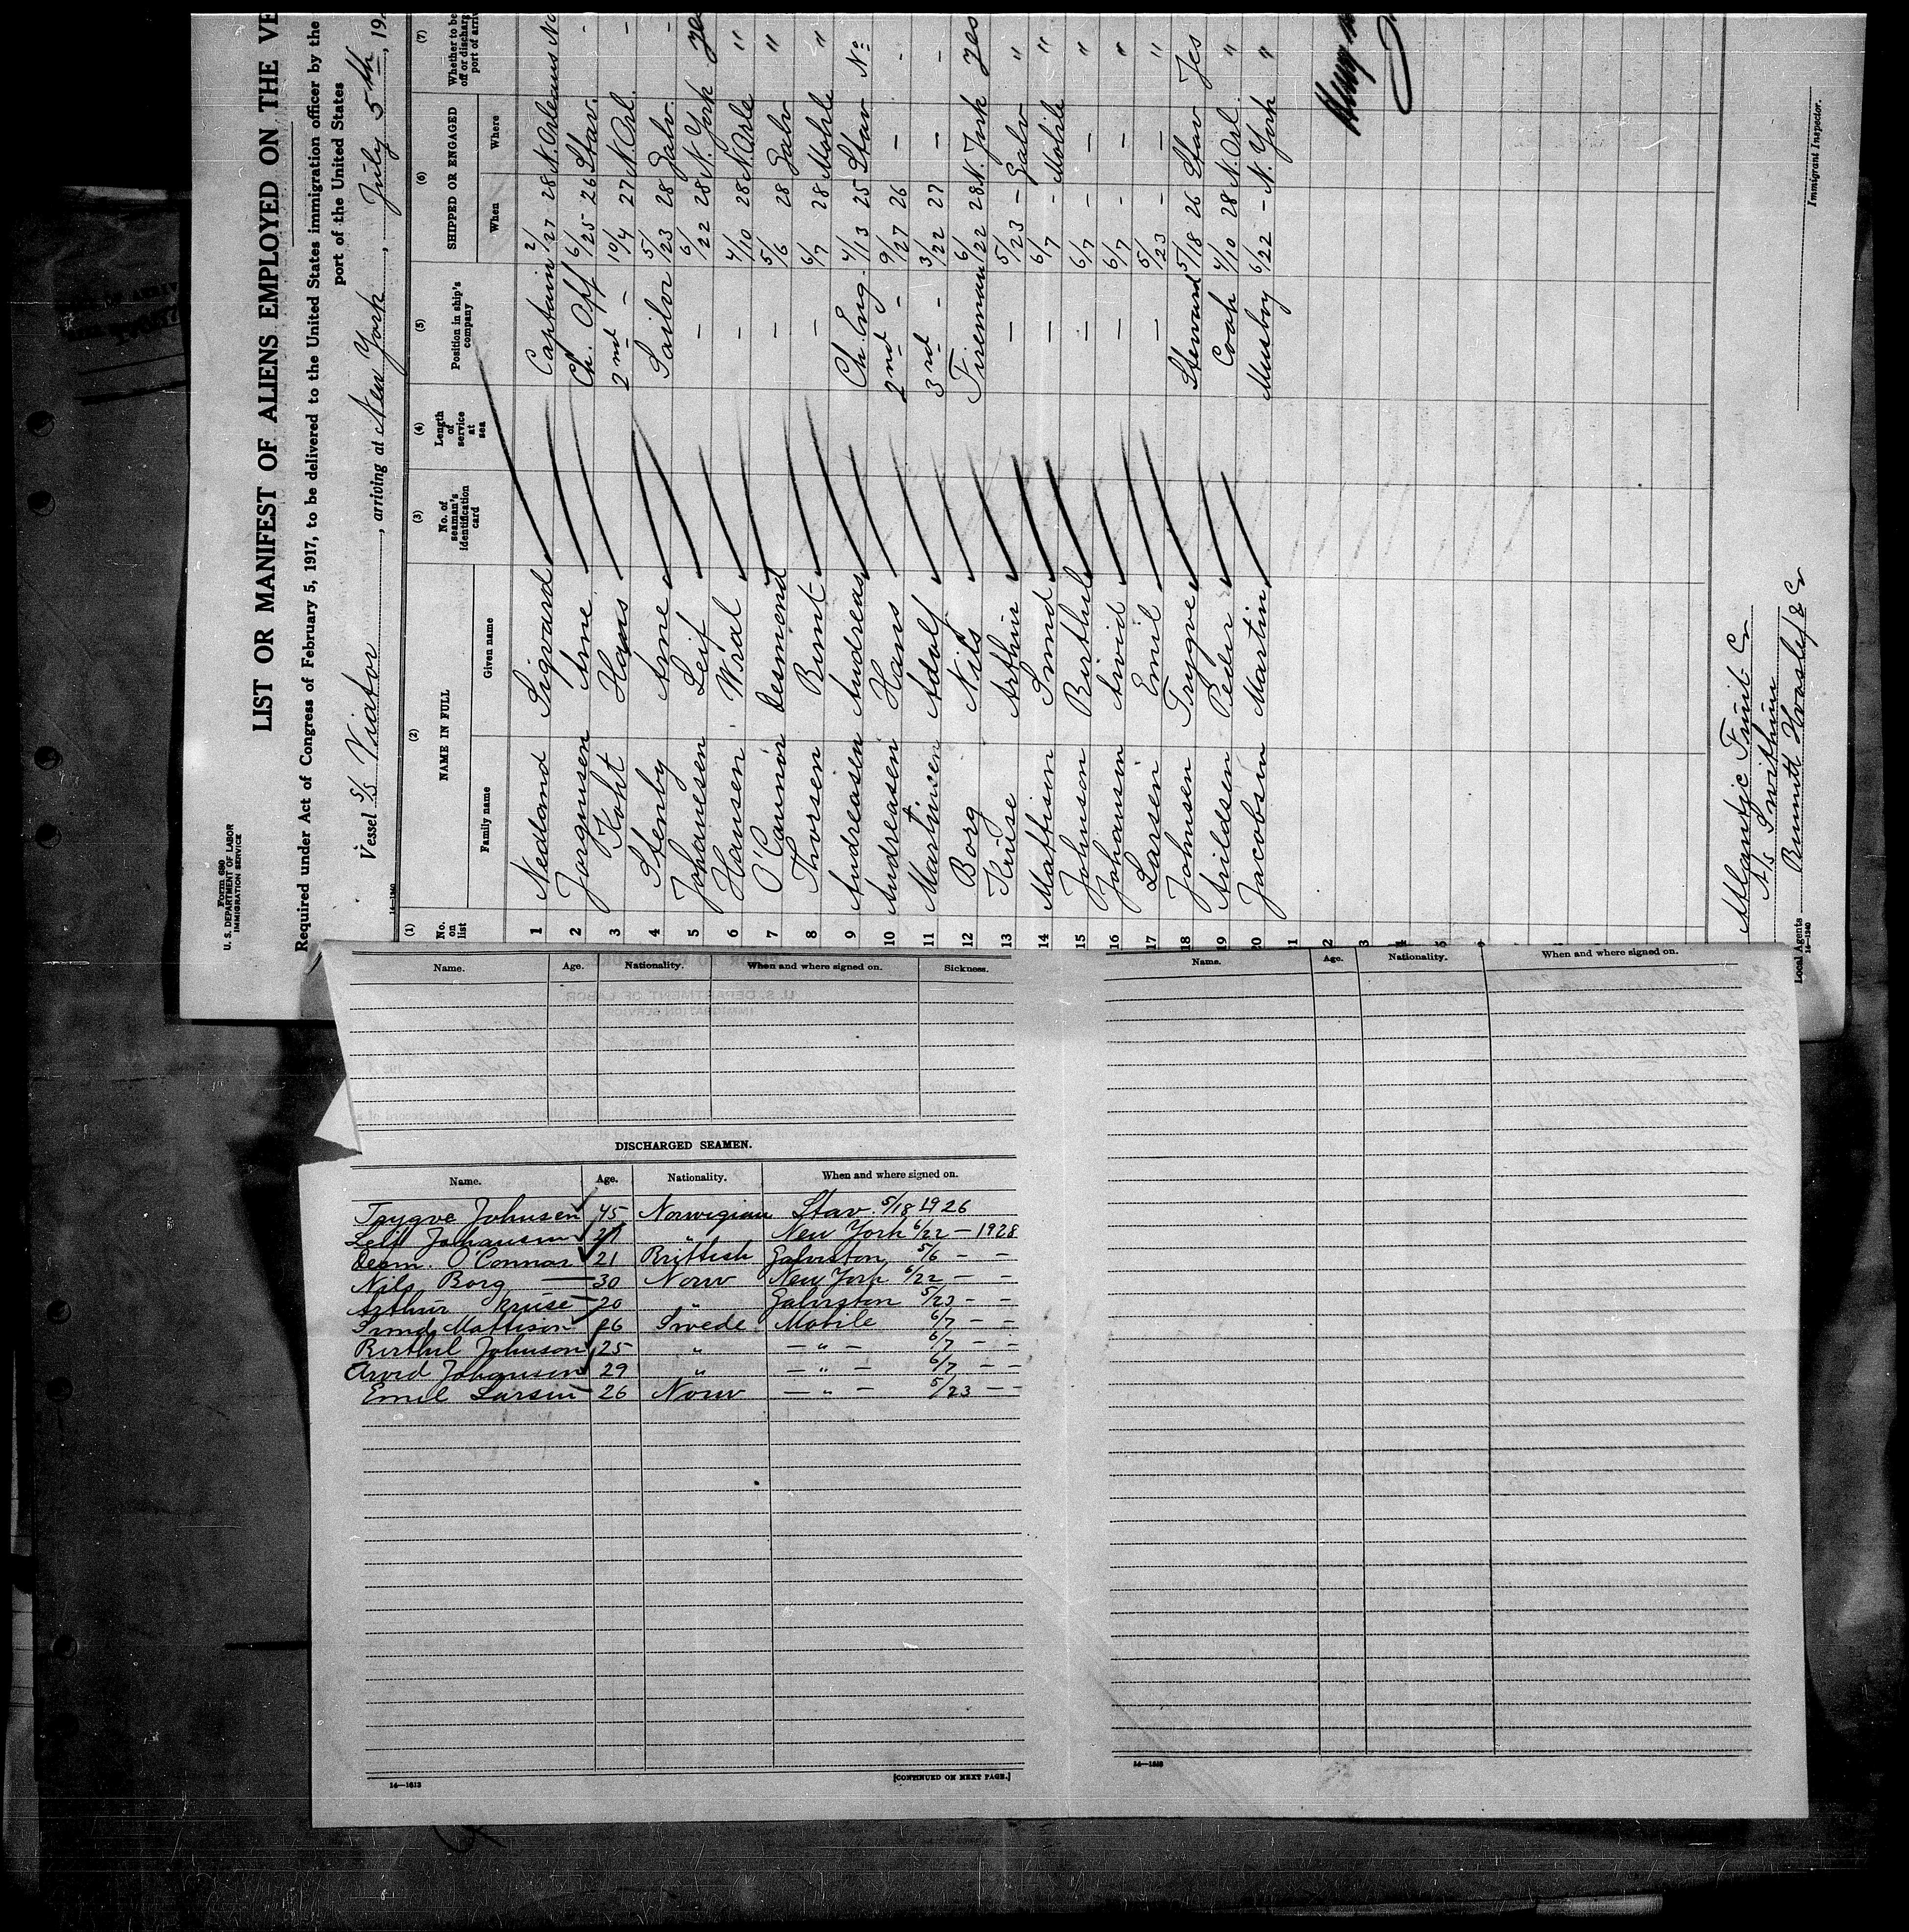 Form 680
U. S. DEPARTMENT OF LABOR
IMMIGRATION SERVICE
LIST OR MANIFEST OF ALIENS EMPLOYED ON THE VE
Required under Act of Congress of February 5, 1917, to be delivered to the United States immigration officer by the
port of the United States
Vessel S/S Viator, arriving at New York, July 5th, 19
14—1240
(1) (2) (3) (4) (5) (6) (7)
No. on list NAME IN FULL Family name Given name No. of seaman's identification card Length of service at sea Position in ship's company SHIPPED OR ENGAGED When Where Whether to be off or discharg port of arriv
1 Nedland Sigvard Captain 2/27 28 N. Orleans No
2 Jorgensen Arne Ch. Off 6/25 26 Stav. -
3 Koht Hans 2nd - 10/4 27 N. Orl. -
4 Stenby Arne Sailor 5/23 28 Galv. -
5 Johanesen Leif - 6/22 28 N. York Yes
6 Hansen - 4/10 28 N. Orle "
7 O'Connor Desmond - 5/6 28 Galv "
8 Thorsen Bernt - 6/7 28 Mobile "
9 Andreasen Andreas Ch. Eng. 4/13 25 Stav No
10 Andreasen Hans 2nd - 9/27 26 - -
11 Martinsen Adolf 3rd - 3/22 27 - -
12 Borg Nils Fireman 6/22 28 N. York Yes
13 Kruse Arthur - 5/23 - Galv "
14 Mattison - 6/7 - Mobile "
15 Johnson Berthil - 6/7 - - "
16 Johanson Arvid - 6/7 - - "
17 Larsen Emil - 5/23 - - "
18 Johnsen Trygve Steward 5/18 26 Stav Yes
19 Arildsen Peder Cook 4/10 28 N. Orl. "
20 Jacobsen Martin Messboy 6/22 - N. York "
Atlantic Fruit Co
A/s
Local Agents Bennett Hvoslef & Co
14—1240
Immigrant Inspector.
Name. Age. Nationality. When and where signed on. Sickness.
DISCHARGED SEAMEN.
Name. Age. Nationality. When and where signed on.
Trygve Johnsen 45 Norwegian Stav. 5/18 1926
Leif Johansen 21 " New York 6/22 — 1928
Desm. O'Connor 21 Brittish Galveston 5/6 — —
Nils Borg 30 Norw New York 6/22 — —
Arthur Kruse 20 " Galveston 5/23 — —
Mattison 26 Swede Mobile 6/7 — —
Berthil Johnson 25 " — " — 6/7 — —
Arvid Johanson 29 " — " — 6/7 — —
Emil Larsen 26 Norw — " — 5/23 — —
14—1613
[CONTINUED ON NEXT PAGE.]
Name. Age. Nationality. When and where signed on.